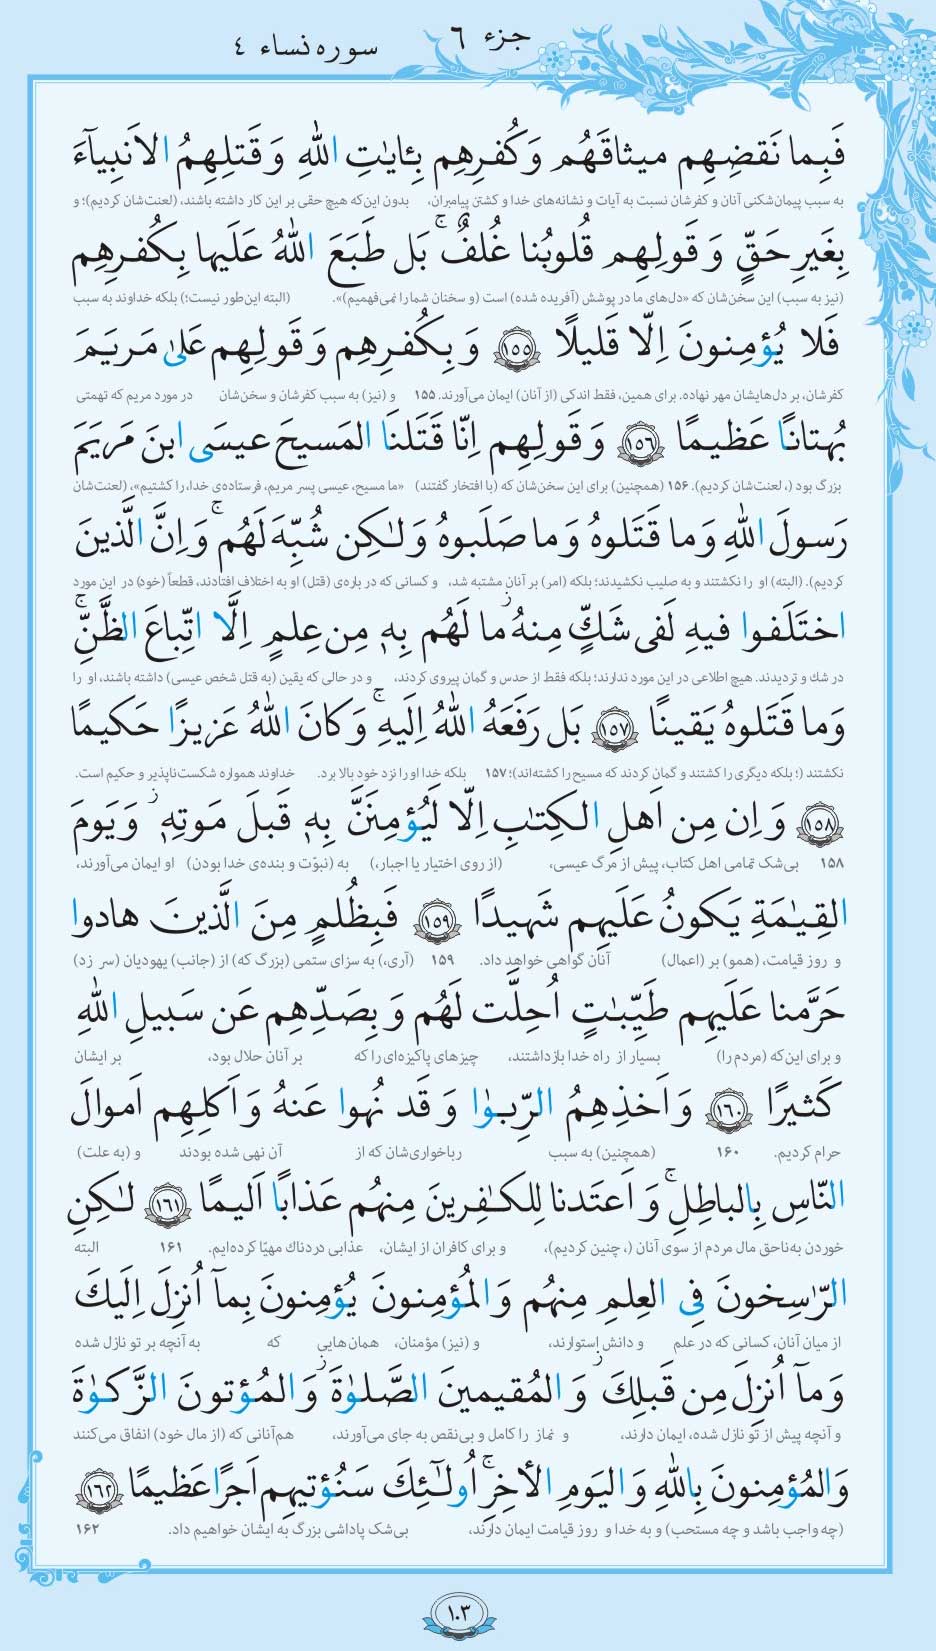 جزء ٦
سوره نساء ٤
فَبِما نَقضِهِم ميثاقَهُم وَ كُفرِهِم بِئايٰتِ اللّٰهِ وَ قَتلِهِمُ الاَنبِيآءَ
به سبب پیمان‌شکنی آنان و کفرشان نسبت به آیات و نشانه‌های خدا و کشتن پیامبران، بدون این‌که هیچ حقی بر این کار داشته باشند، (لعنت‌شان کردیم)؛ و
بِغَيرِ حَقٍّ وَ قَولِهِم قُلوبُنا غُلفٌ ۚ بَل طَبَعَ اللّٰهُ عَلَيها بِكُفرِهِم
(نیز به سبب) این سخن‌شان که «دل‌های ما در پوشش (آفریده شده) است (و سخنان شما را نمی‌فهمیم)». (البته این‌طور نیست؛) بلکه خداوند به سبب
فَلا يُؤمِنونَ اِلّا قَليلًا ﴿١٥٥﴾ وَ بِكُفرِهِم وَ قَولِهِم عَلىٰ مَريَمَ
کفرشان، بر دل‌هایشان مهر نهاده. برای همین، فقط اندکی (از آنان) ایمان می‌آورند. ١٥٥ و (نیز) به سبب کفرشان و سخن‌شان در مورد مریم که تهمتی
بُهتانًا عَظيمًا ﴿١٥٦﴾ وَ قَولِهِم اِنّا قَتَلنَا المَسيحَ عيسَى ابنَ مَريَمَ
بزرگ بود (، لعنت‌شان کردیم). ١٥٦ (همچنین) برای این سخن‌شان که (با افتخار گفتند) «ما مسیح، عیسی پسر مریم، فرستاده‌ی خدا، را کشتیم»، (لعنت‌شان
رَسولَ اللّٰهِ وَ ما قَتَلوهُ وَ ما صَلَبوهُ وَ لٰكِن شُبِّهَ لَهُم ۚ وَ اِنَّ الَّذينَ
کردیم). (البته) او را نکشتند و به صلیب نکشیدند؛ بلکه (امر) بر آنان مشتبه شد، و کسانی که در باره‌ی (قتل) او به اختلاف افتادند، قطعاً (خود) در این مورد
اختَلَفوا فيهِ لَفى شَكٍّ مِنهُ ۚ ما لَهُم بِهٖ مِن عِلمٍ اِلَّا اتِّباعَ الظَّنِّ ۚ
در شك و تردیدند. هیچ اطلاعی در این مورد ندارند؛ بلکه فقط از حدس و گمان پیروی کردند، و در حالی که یقین (به قتل شخص عیسی) داشته باشند، او را
وَ ما قَتَلوهُ يَقينًا ﴿١٥٧﴾ بَل رَفَعَهُ اللّٰهُ اِلَيهِ ۚ وَ كانَ اللّٰهُ عَزيزًا حَكيمًا
نکشتند (؛ بلکه دیگری را کشتند و گمان کردند که مسیح را کشته‌اند)؛ ١٥٧ بلکه خدا او را نزد خود بالا برد. خداوند همواره شکست‌ناپذیر و حکیم است.
﴿١٥٨﴾ وَ اِن مِن اَهلِ الكِتٰبِ اِلّا لَيُؤمِنَنَّ بِهٖ قَبلَ مَوتِهٖ ز وَ يَومَ
١٥٨ بی‌شک تمامی اهل کتاب، پیش از مرگ عیسی، (از روی اختیار یا اجبار،) به (نبوّت و بنده‌ی خدا بودن) او ایمان می‌آورند،
القِيٰمَةِ يَكونُ عَلَيهِم شَهيدًا ﴿١٥٩﴾ فَبِظُلمٍ مِنَ الَّذينَ هادوا
و روز قیامت، (همو) بر (اعمال) آنان گواهی خواهد داد. ١٥٩ (آری،) به سزای ستمی (بزرگ که) از (جانب) یهودیان (سر زد)
حَرَّمنا عَلَيهِم طَيِّبٰتٍ اُحِلَّت لَهُم وَ بِصَدِّهِم عَن سَبيلِ اللّٰهِ
و برای این‌که (مردم را) بسیار از راه خدا بازداشتند، چیزهای پاکیزه‌ای را که بر آنان حلال بود، بر ایشان
كَثيرًا ﴿١٦٠﴾ وَ اَخذِهِمُ الرِّبوٰا وَ قَد نُهوا عَنهُ وَ اَكلِهِم اَموالَ
حرام کردیم. ١٦٠ (همچنین) به سبب رباخواری‌شان که از آن نهی شده بودند و (به علت)
النّاسِ بِالباطِلِ ۚ وَ اَعتَدنا لِلكٰفِرينَ مِنهُم عَذابًا اَليمًا ﴿١٦١﴾ لٰكِنِ
خوردن به‌ناحق مال مردم از سوی آنان (، چنین کردیم)، و برای کافران از ایشان، عذابی دردناك مهیّا کرده‌ایم. ١٦١ البته
الرّاسِخونَ فِى العِلمِ مِنهُم وَ المُؤمِنونَ يُؤمِنونَ بِمآ اُنزِلَ اِلَيكَ
از میان آنان، کسانی که در علم و دانش استوارند، و (نیز) مؤمنان، همان‌هایی که به آنچه بر تو نازل شده
وَ مآ اُنزِلَ مِن قَبلِكَ ز وَ المُقيمينَ الصَّلوٰةَ ز وَ المُؤتونَ الزَّكوٰةَ
و آنچه پیش از تو نازل شده، ایمان دارند، و نماز را کامل و بی‌نقص به جای می‌آورند، هم‌آنانی که (از مال خود) انفاق می‌کنند
وَ المُؤمِنونَ بِاللّٰهِ وَ اليَومِ الأخِرِ ۚ اُولٰٓئِكَ سَنُؤتيهِم اَجرًا عَظيمًا ﴿١٦٢﴾
(چه واجب باشد و چه مستحب) و به خدا و روز قیامت ایمان دارند، بی‌شک پاداشی بزرگ به ایشان خواهیم داد. ١٦٢
١٠٣